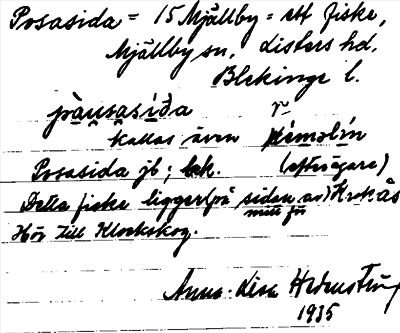 Posasida = 15 Mjällby = ett fiske,
Mjällby sn, Listers hd,
Blekinge l.
pàu̯sasíða
kallas även
Posasida jb; bek. (eftersägare)
Detta fiske ligger (på sidan av) Krokås
mitt för
Hör till Klockskog.
Anna-Lisa Hedenström
1935